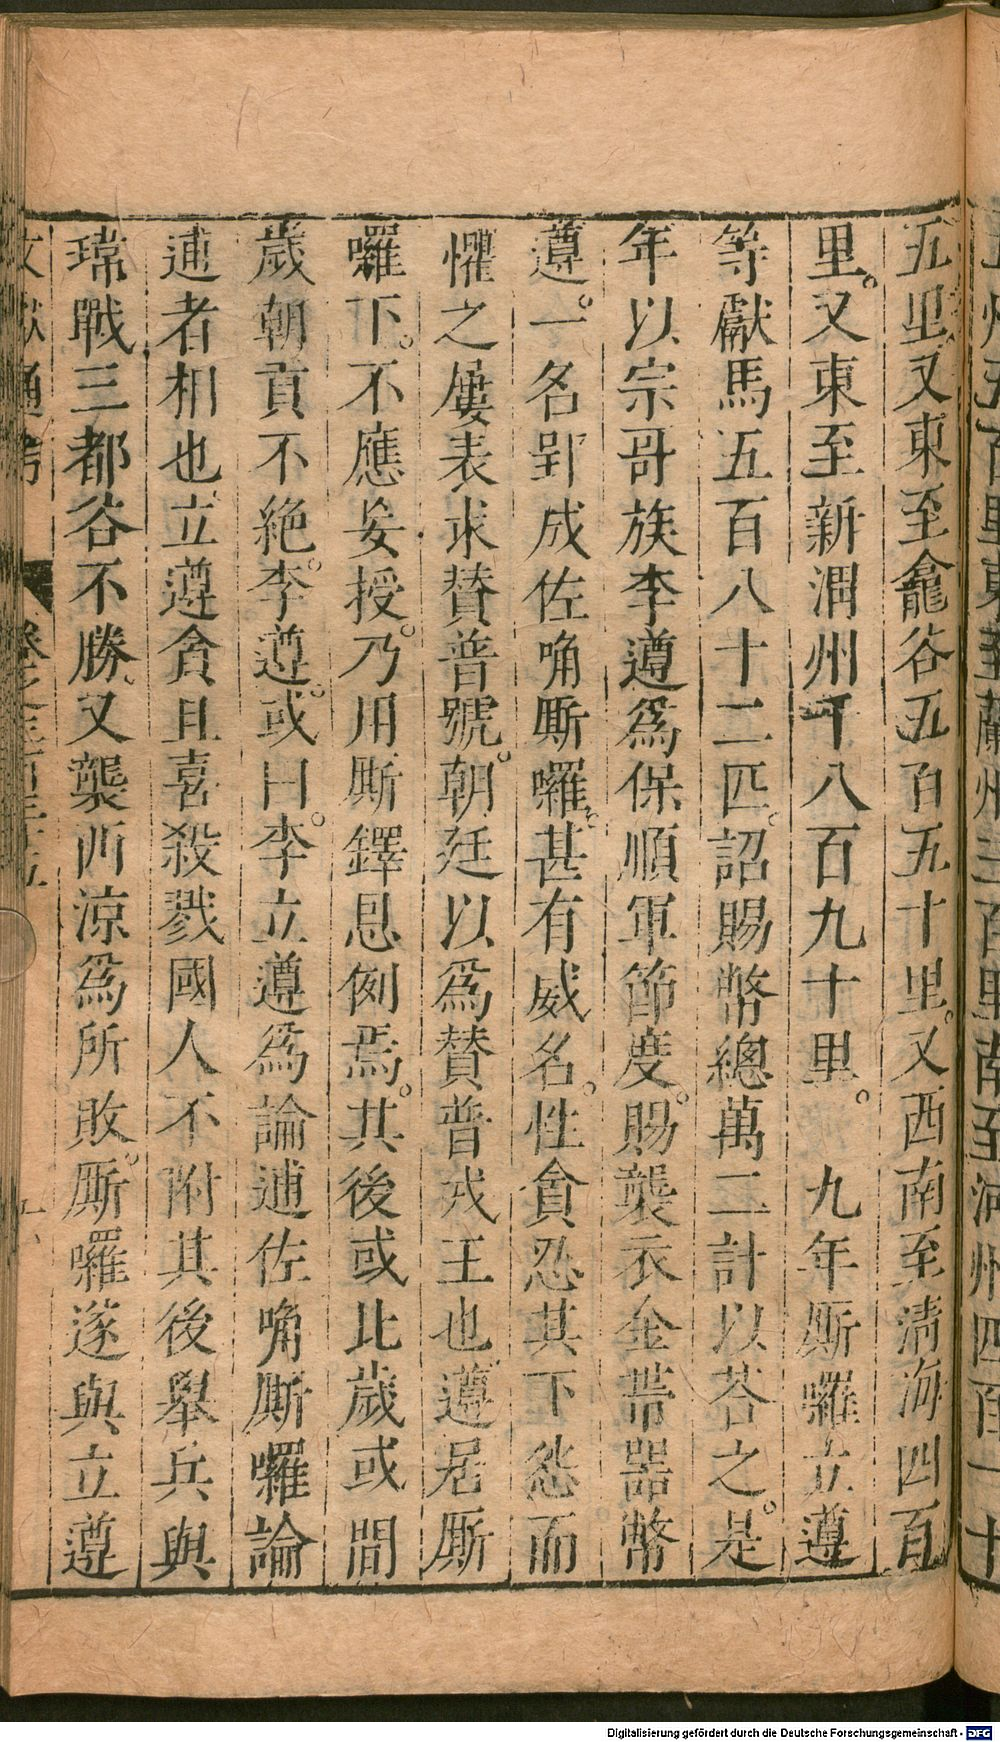 五里又東至龕谷五百五十里。又西南至清海四百
里。又東至新渭州千八百九十里。九年厮囉立遵
等獻馬五百八十二匹。詔賜幣總萬二計以荅之。是
年以宗哥族李遵爲保順軍節度。賜襲衣金帶器幣
遵。一名郢成佐喃厮囉。甚有威名。性貪忍其下怨而
懼之屢表求賛普號。朝廷以爲賛普戎王也遵居厮
囉下。不應妄授。乃用厮鐸恩例焉。其後或比歲或間
歲朝貢不絶。李遵。或曰。李立遵爲論逋佐喃厮囉論
逋者相也立遵貪且喜殺戮國人不附其後舉兵與
瑋戰三都谷不勝。又襲西涼爲所敗。厮囉遂與立遵
文獻通考 卷之三百三十五
Digitalisierung gefördert durch die Deutsche Forschungsgemeinschaft - DFG